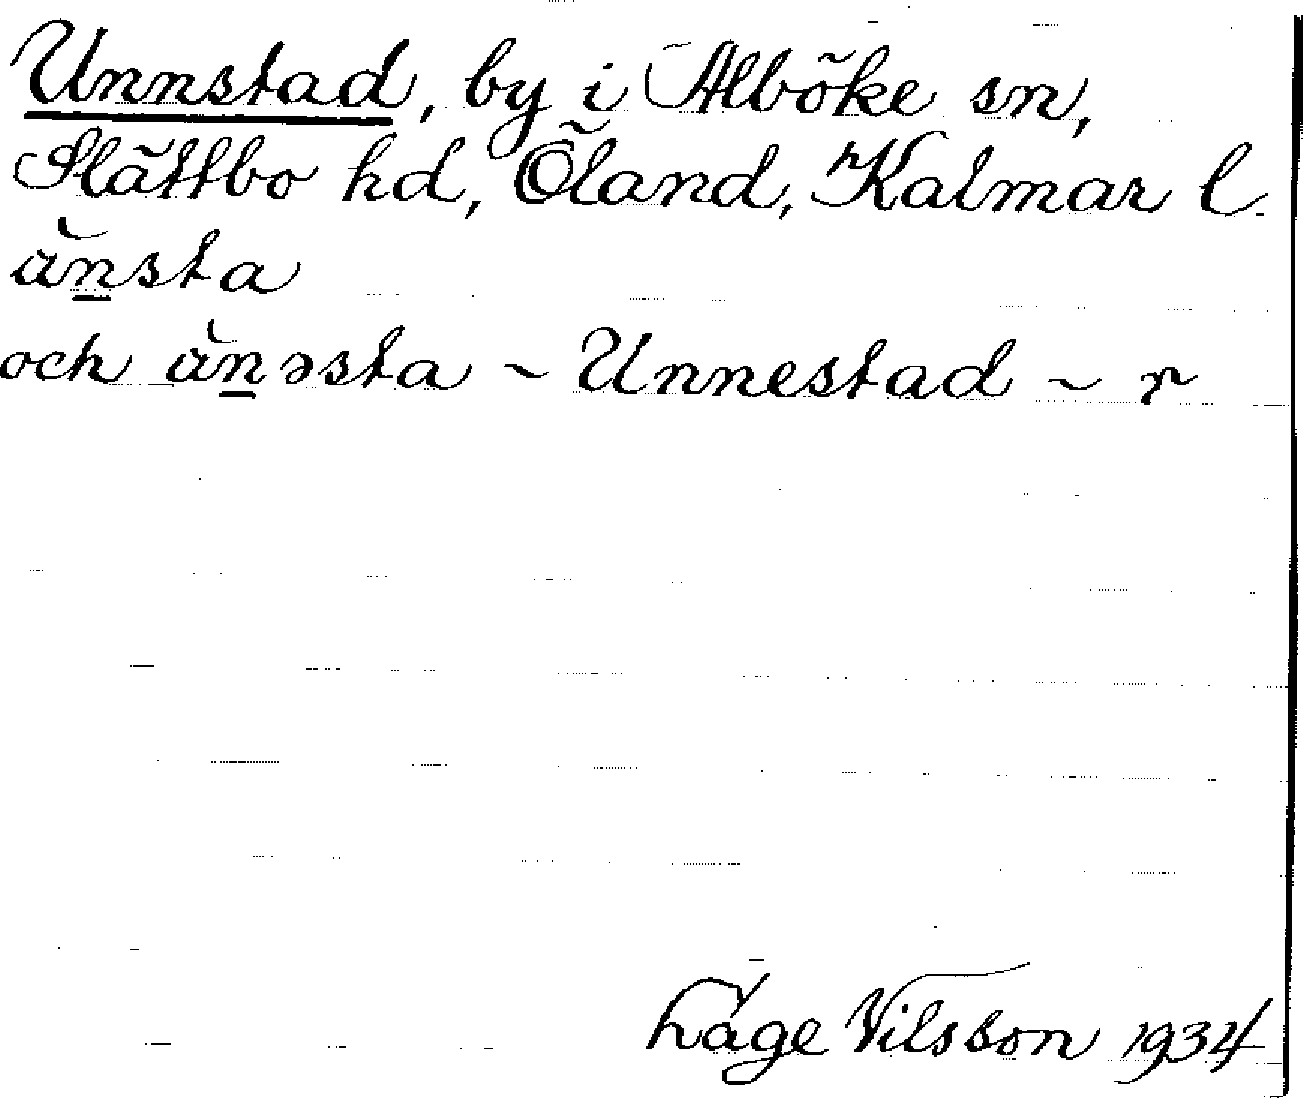 Unnstad, by i Alböke sn,
Slättbo hd, Öland, Kalmar l.
ùnsta
och ùnəsta ~ Unnestad ~ r
Låge Nilsson 1934